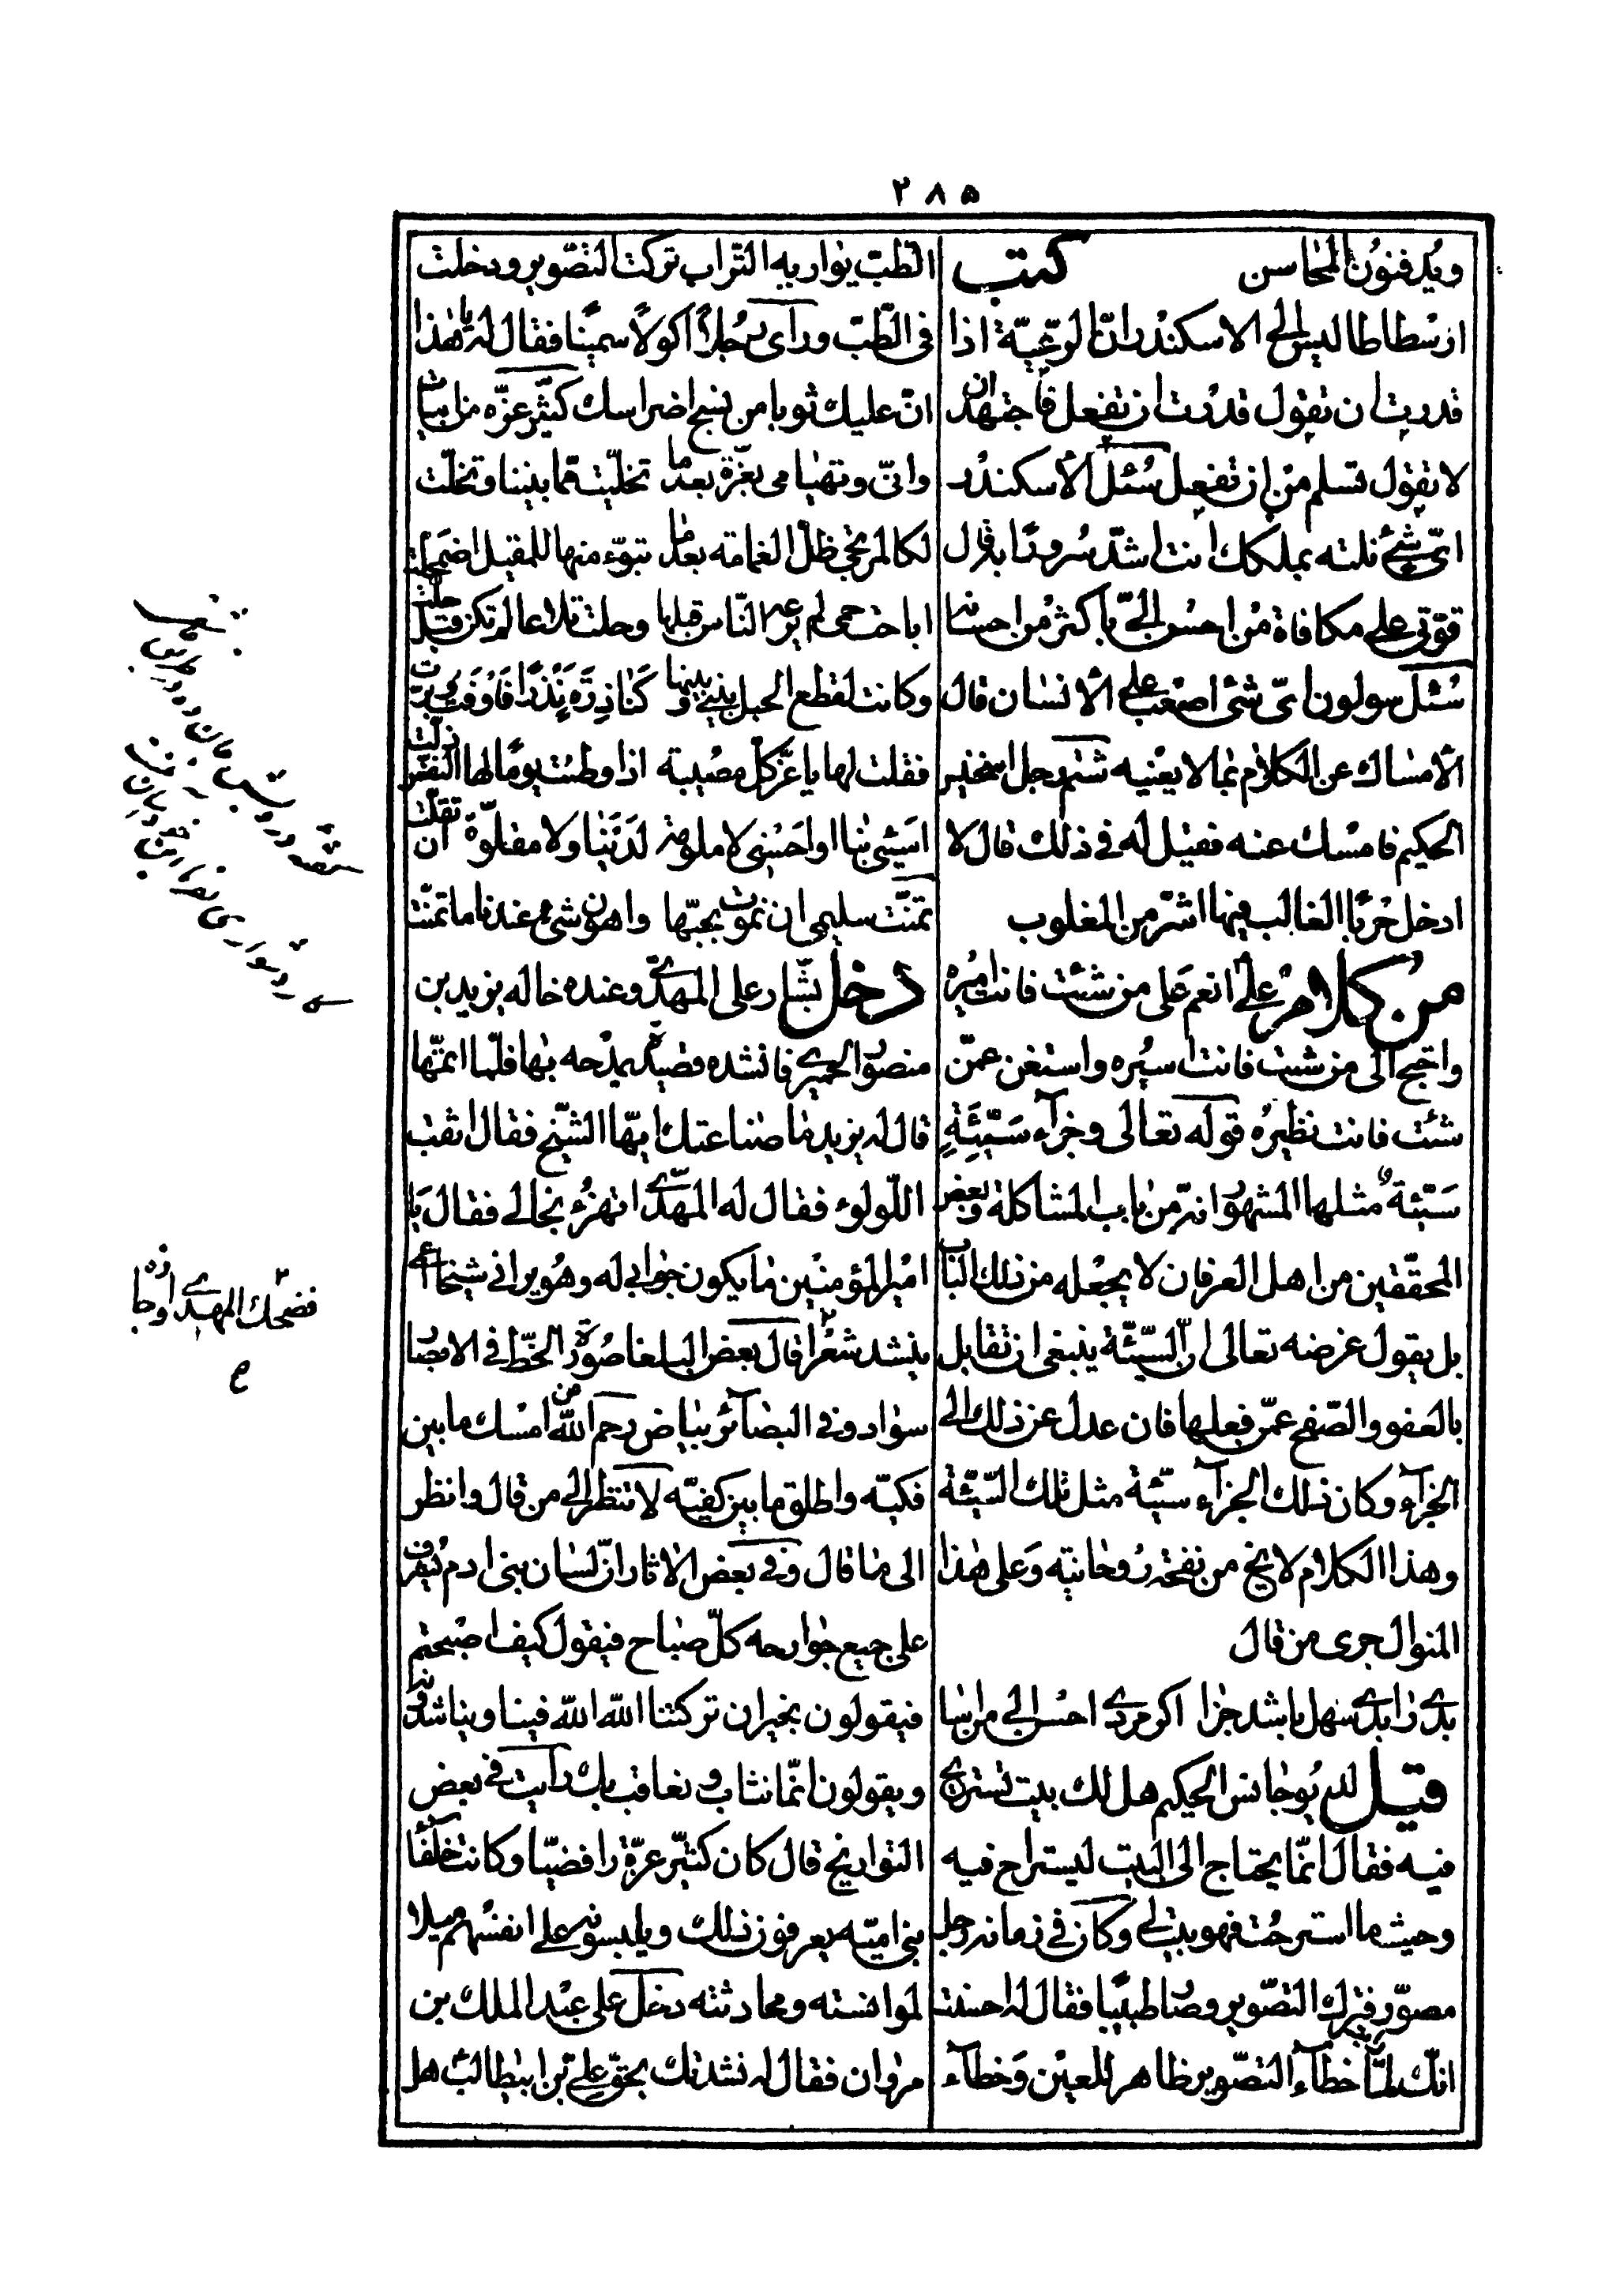 ۲۸۵
ويدفنون المحاسن كتب
ارسطاطاليس الى الاسكندر ان الرعية اذا
قدرت ان تقول قدرت ان تفعل فاجتهد ان
لا تقول تسلم من ان تفعل سئل الاسكندر
اى شئ نلته بملكك انت اشد سرورًا به قال
قوتى على مكافاة من احسن الىّ باكثر من احسانه
سئل سولون اىّ شئ اصعب على الانسان قال
الامساك عن الكلام بما لا يعنيه شتم رجل اسخنيس
الحكيم فامسك عنه فقيل له فى ذلك قال لا
ادخل حربًا الغالب فيها اشر من المغلوب
من كلامهم انعم على من شئت فانت اميره
واحتج الى من شئت فانت اسيره واستغن عمّن
شئت فانت نظيره قوله تعالى وجزآء سَيّئَةٍ
سَيّئة مثلها المشهور انه من باب المشاكلة وبعض
المحققين من اهل العرفان لا يجعله من ذلك الباب
بل يقول غرضه تعالى ان السيّئة ينبغى ان تقابل
بالعفو والصفح عمّن فعلها فان عدل عن ذلك الى
الجزآء وكان ذلك الجزآء سيّئة مثل تلك السّيّئة
وهذا الكلام لا يخ من نفحة روحانيته وعلى هذا
المنوال جرى من قال
بدى را بدى سهل باشد جزا اكر مردى احسن الى من اسا
قيل لديوجانس الحكيم هل لك بيت تستريح
فيه فقال انّما يحتاج الى البيت ليستراح فيه
وحيثما استرحت فهو بيتى وكان فى زمانه رجل
مصوّر فترك التصوير وصار طبيبًا فقال له احسنت
انّك لمّا رايت خطآء التصوير ظاهر للعين وخطآء
الطبّ يواريه التراب تركت التصوير ودخلت
فى الطّبّ وراى رجلًا اكولًا سمينًا فقال له يا هذا
انّ عليك ثوبا من نسج اضراسك كثيّر عزّه من ابيات
وانّى وتهيامى بعزة بعد ما تخليت ممّا بيننا وتخلّت
لكالمرتجى ظلّ الغمامة بعد ما تبوّء منها للمقيل اضمحلت
اباحت حمى لم يرعه النّاس قبلها وحلت تلاعا لم تكن قبل حلت
وكانت لقطع الحبل بينى وبينها كناذرة نذرًا فاوفت وبرّت
فقلت لها يا عزّ كلّ مصيبة اذا وطنت يومًا لها النفس ذلّت
اسيئى بنا او احسنى لا ملومة لدينا ولا مقلوّة ان تقلّت
تمنّت سليمى ان نموت بحبّها واهون شئ عندنا ما تمنّت
دخل بشّار على المهدىّ وعنده خاله يزيد بن
منصور الحميرى فانشده قصيدة يمدحه بها فلمّا اتمّها
قال له يزيد ما صناعتك ايّها الشيخ فقال اثقب
اللّولوء فقال له المهدىّ اتهزء بخالى فقال يا
امير المؤمنين ما يكون جوابى له وهو يرانى شيخًا اعمى
ينشد شعرًا ۲ قال بعض البلغا صورة الخطّ فى الابصار
سواد وفى البصآئر بياض رحم اللّه من امسك ما بين
فكيّه واطلق ما بين كفيّه لا تنظر الى من قال وانظر
الى ما قال وفى بعض الاثار انّ لسان بنى ادم يشرف
على جميع جوارحه كلّ صباح فيقول كيف اصبحتم
فيقولون بخير ان تركتنا اللّه اللّه فينا ويناشدونه
ويقولون انّما نثاب ونعاقب بك رايت فى بعض
التواريخ قال كان كثيّر عزّة رافضيّا وكانت خلفاء
بنى اميّه يعرفون ذلك ويلبسونه على انفسهم ميلا
لموانسته ومحادثته دخل على عبد الملك بن
مروان فقال له نشدتك بحقّ على بن ابيطالب هل
۲
فضحك المهدى واجازه